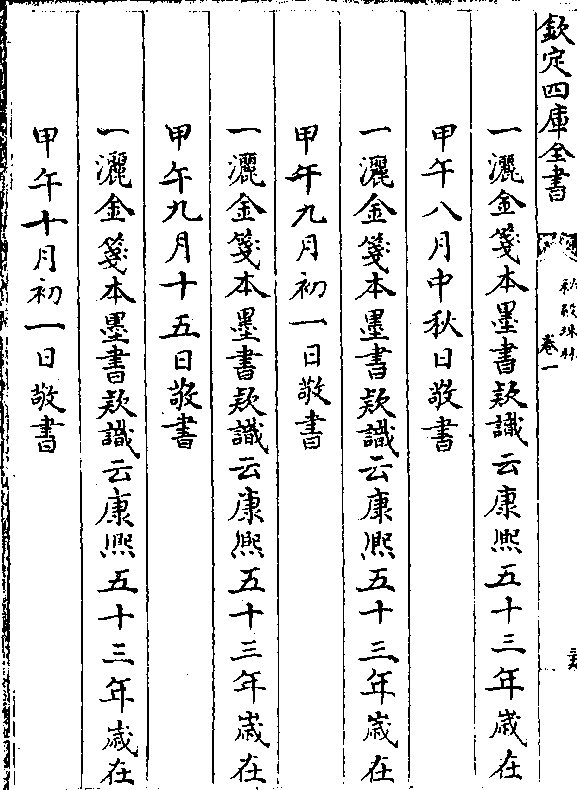 欽定四庫全書
秘殿珠林
卷一
一灑金箋本墨書欵識云康熙五十三年歲在
甲午八月中秋日敬書
一灑金箋本墨書欵識云康熙五十三年歲在
甲午九月初一日敬書
一灑金箋本墨書欵識云康熙五十三年歲在
甲午九月十五日敬書
一灑金箋本墨書欵識云康熙五十三年歲在
甲午十月初一日敬書